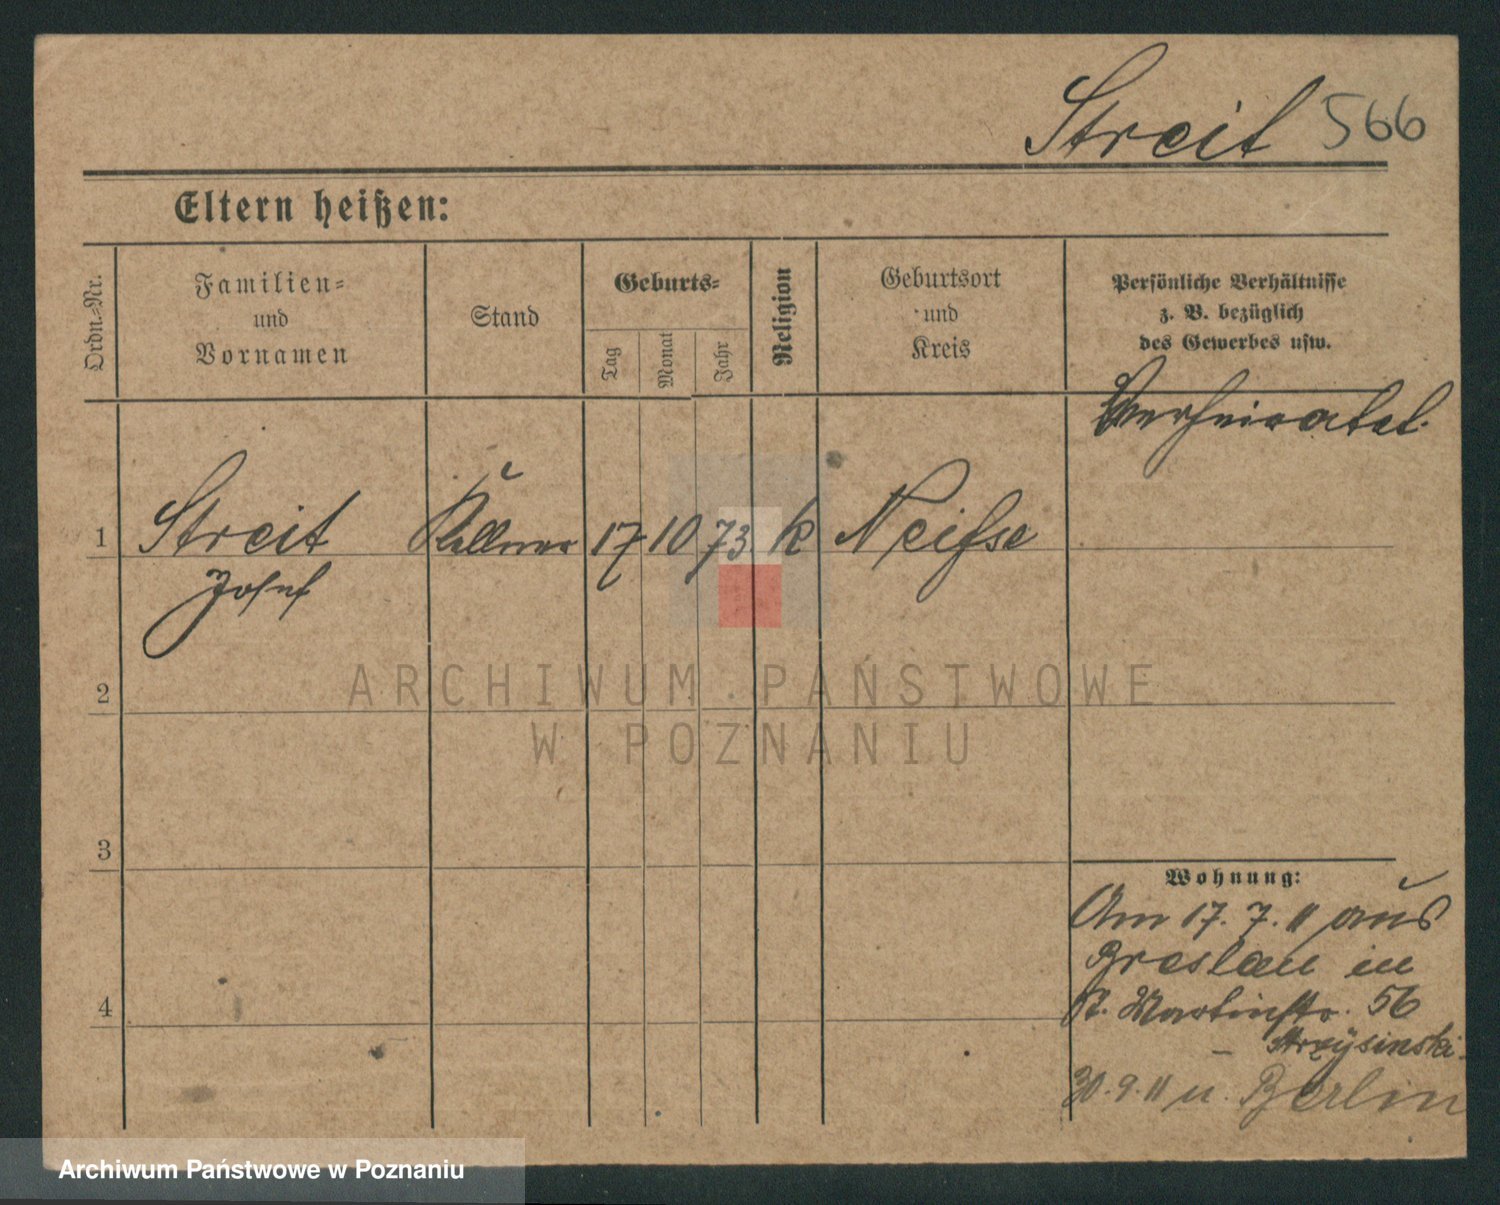 Streit 566
Eltern heißen:
Ordn.-Nr.
Familien-
und
Vornamen
Stand
Geburts-
Tag
Monat
Jahr
Religion
Geburtsort
und
Kreis
Persönliche Verhältnisse
z. B. bezüglich
des Gewerbes usw.
Verheiratet.
1 Streit Kellner 17 10 73 k Neisse
Josef
2
3
4
Wohnung:
Am 17. 7. 11 aus
Breslau in
St. Martinstr. 56
30. 9. 11 n. Berlin
ARCHIWUM PAŃSTWOWE
W POZNANIU
Archiwum Państwowe w Poznaniu